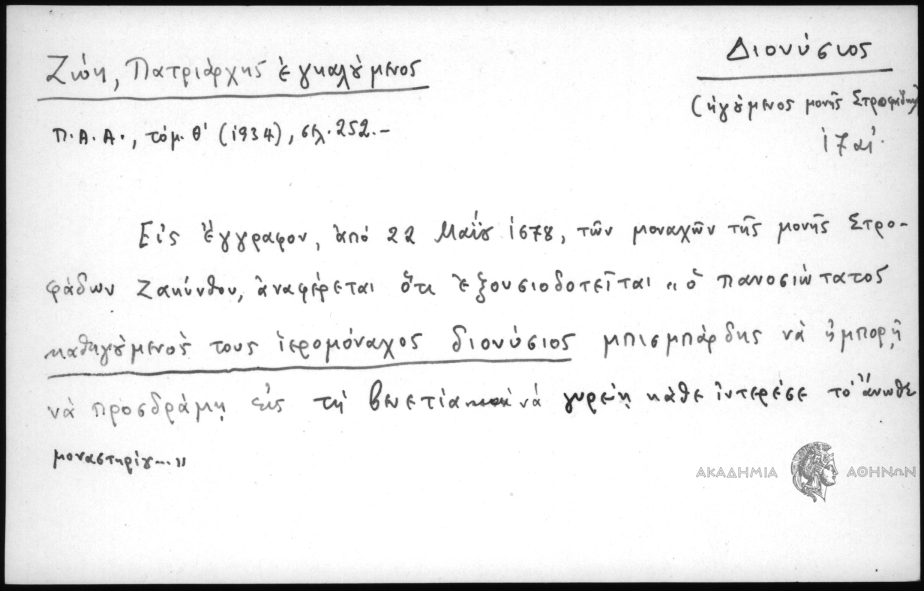 Διονύσιος
Ζώη, Πατριάρχης ἐγκαλούμενος
(ἡγούμενος μονῆς Στροφάδων)
Π.Α.Α., τόμ. Θ' (1934), σελ. 252.-
17 αἰ.
Εἰς ἔγγραφον, ἀπό 22 Μαΐου 1678, τῶν μοναχῶν τῆς μονῆς Στρο-
φάδων Ζακύνθου, ἀναφέρεται ὅτι ἐξουσιοδοτεῖται «ὁ πανοσιώτατος
καθηγούμενος τους ἱερομόναχος διονύσιος μπισμπάρδης νὰ ἠμπορῇ
νὰ προσδράμῃ εἰς τη βενετία νά γυρεύῃ κάθε ἰντερέσε το ἄνωθε
μοναστηρίου...»
ΑΚΑΔΗΜΙΑ ΑΘΗΝΩΝ